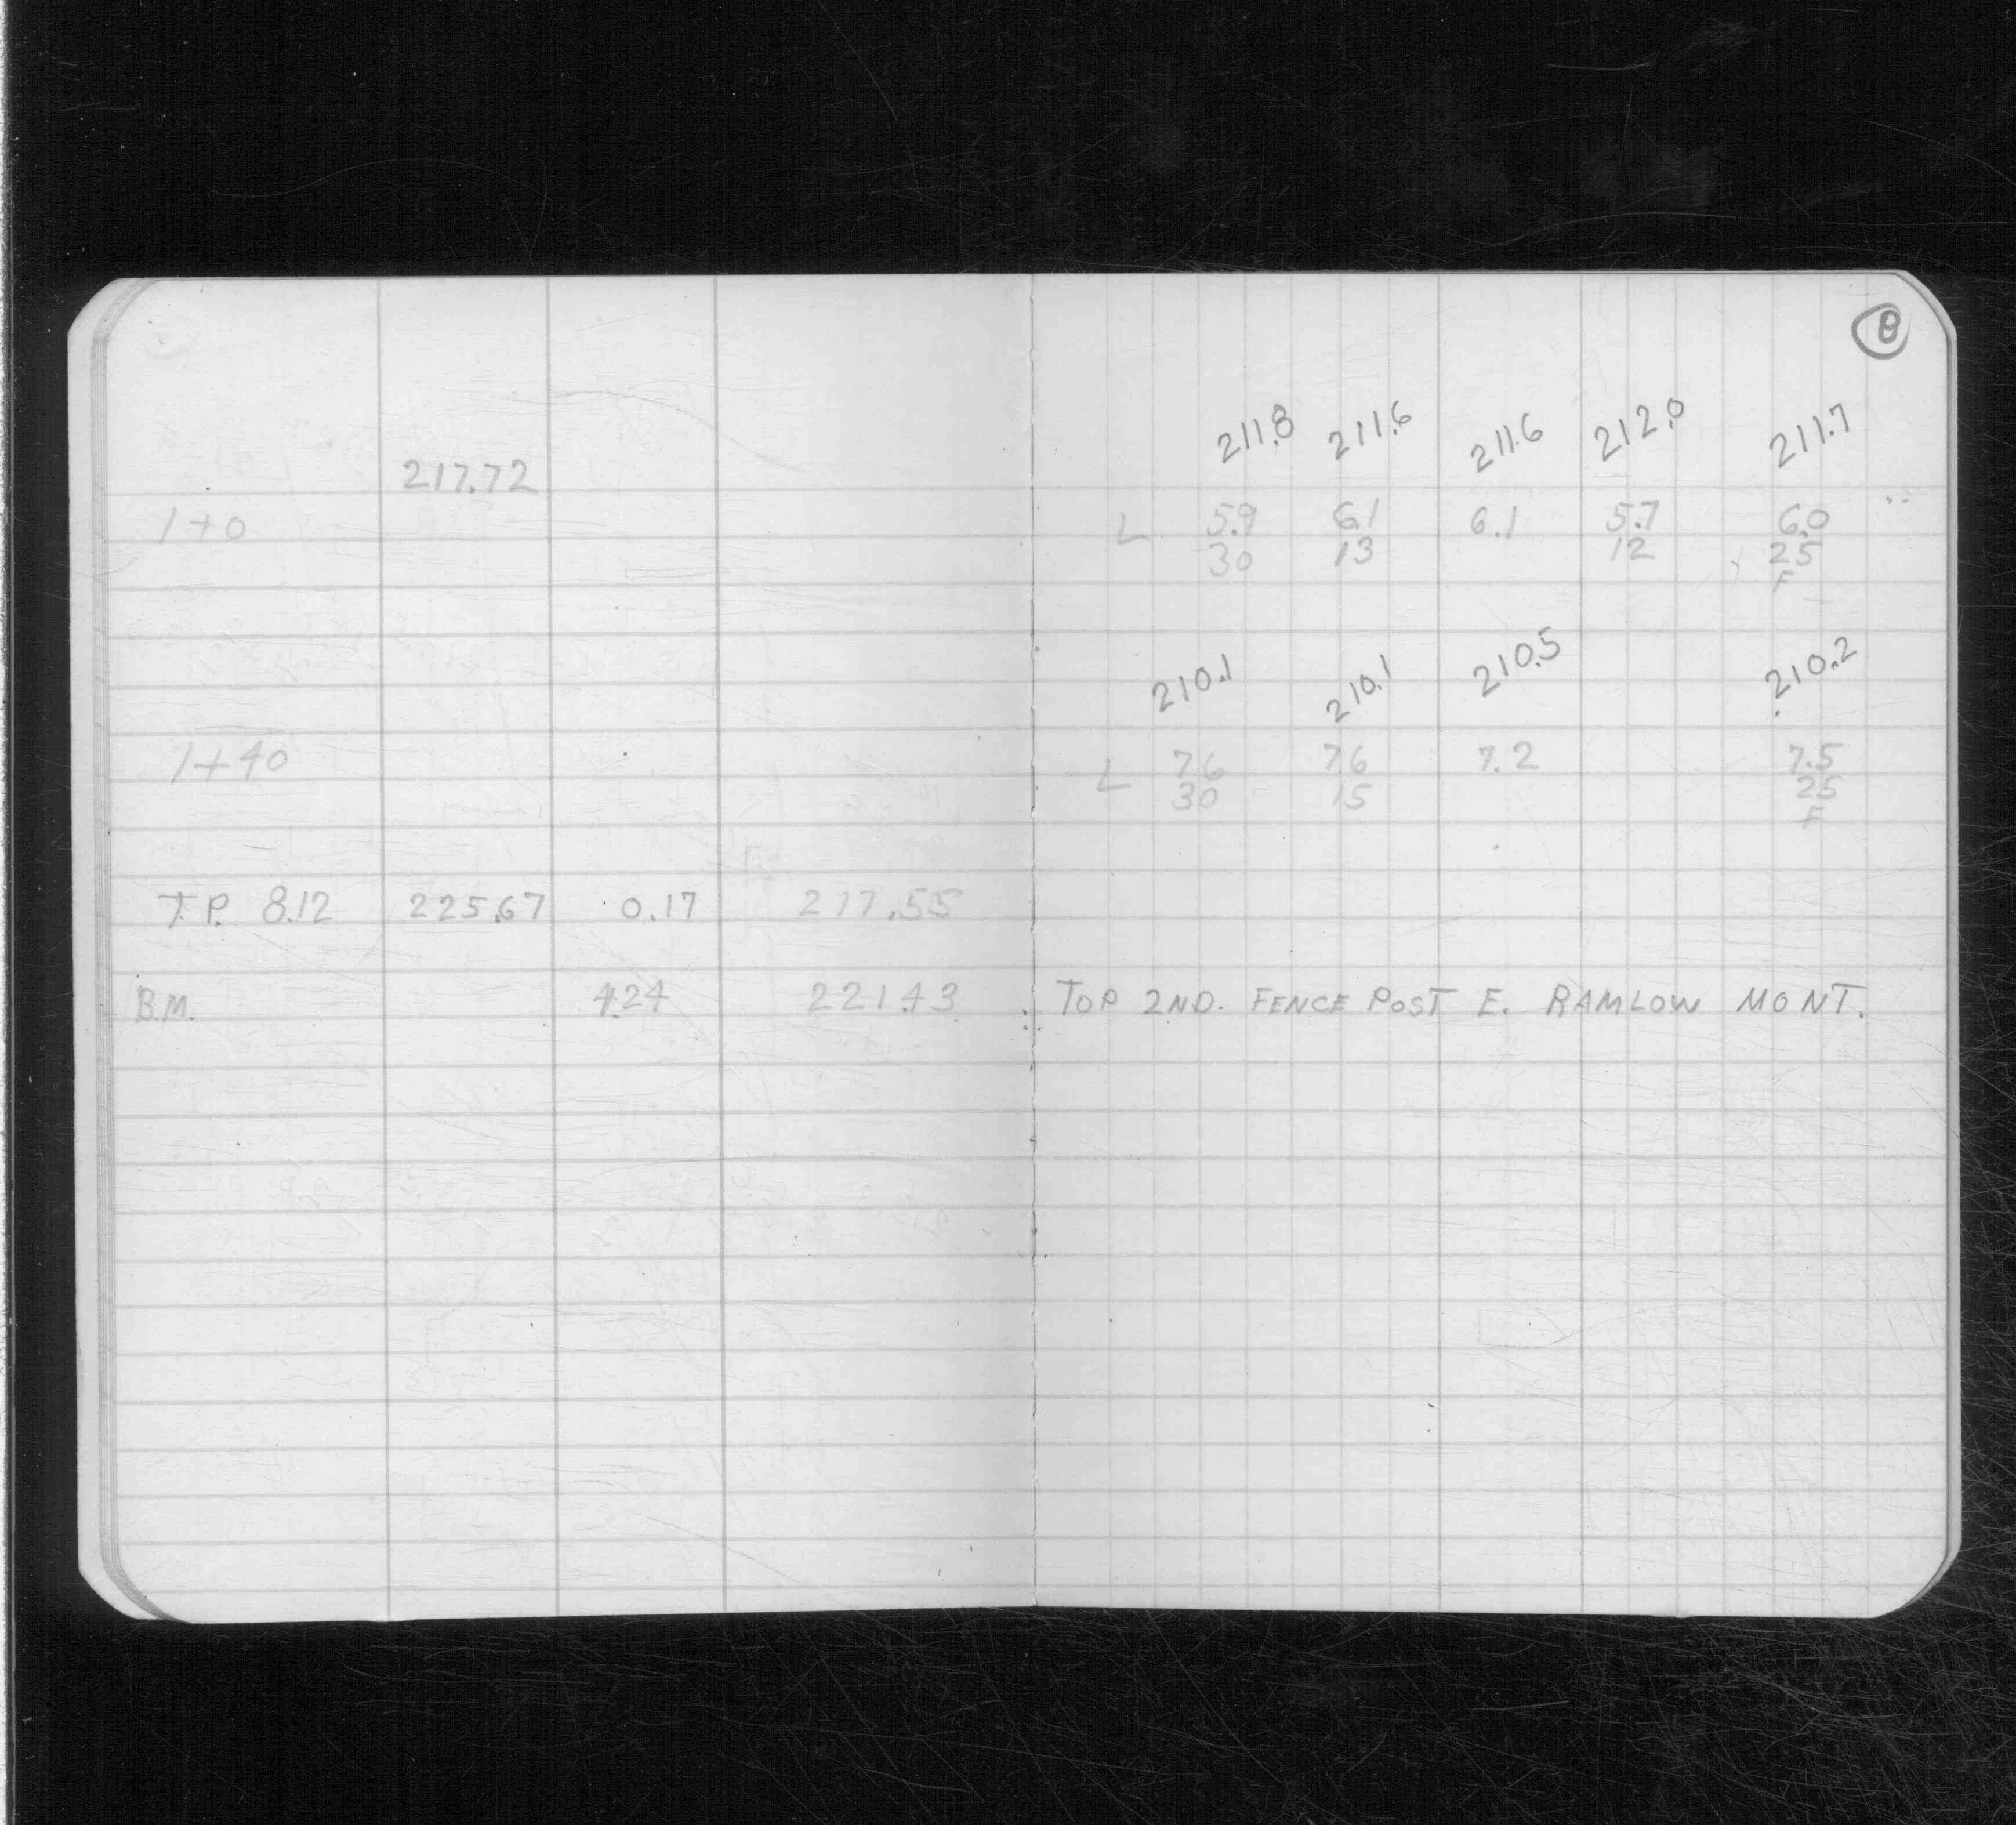 8
211.8 211.6 211.6 212.0 211.7
217.72
1+0 L 5.9 6.1 6.1 5.7 6.0
30 13 12 25
F
210.1 210.1 210.5 210.2
1+40 L 7.6 7.6 7.2 7.5
30 15 25
F
T.P. 8.12 225.67 0.17 217.55
B.M. 4.24 221.43 TOP 2ND. FENCE POST E. RAMLOW MONT.